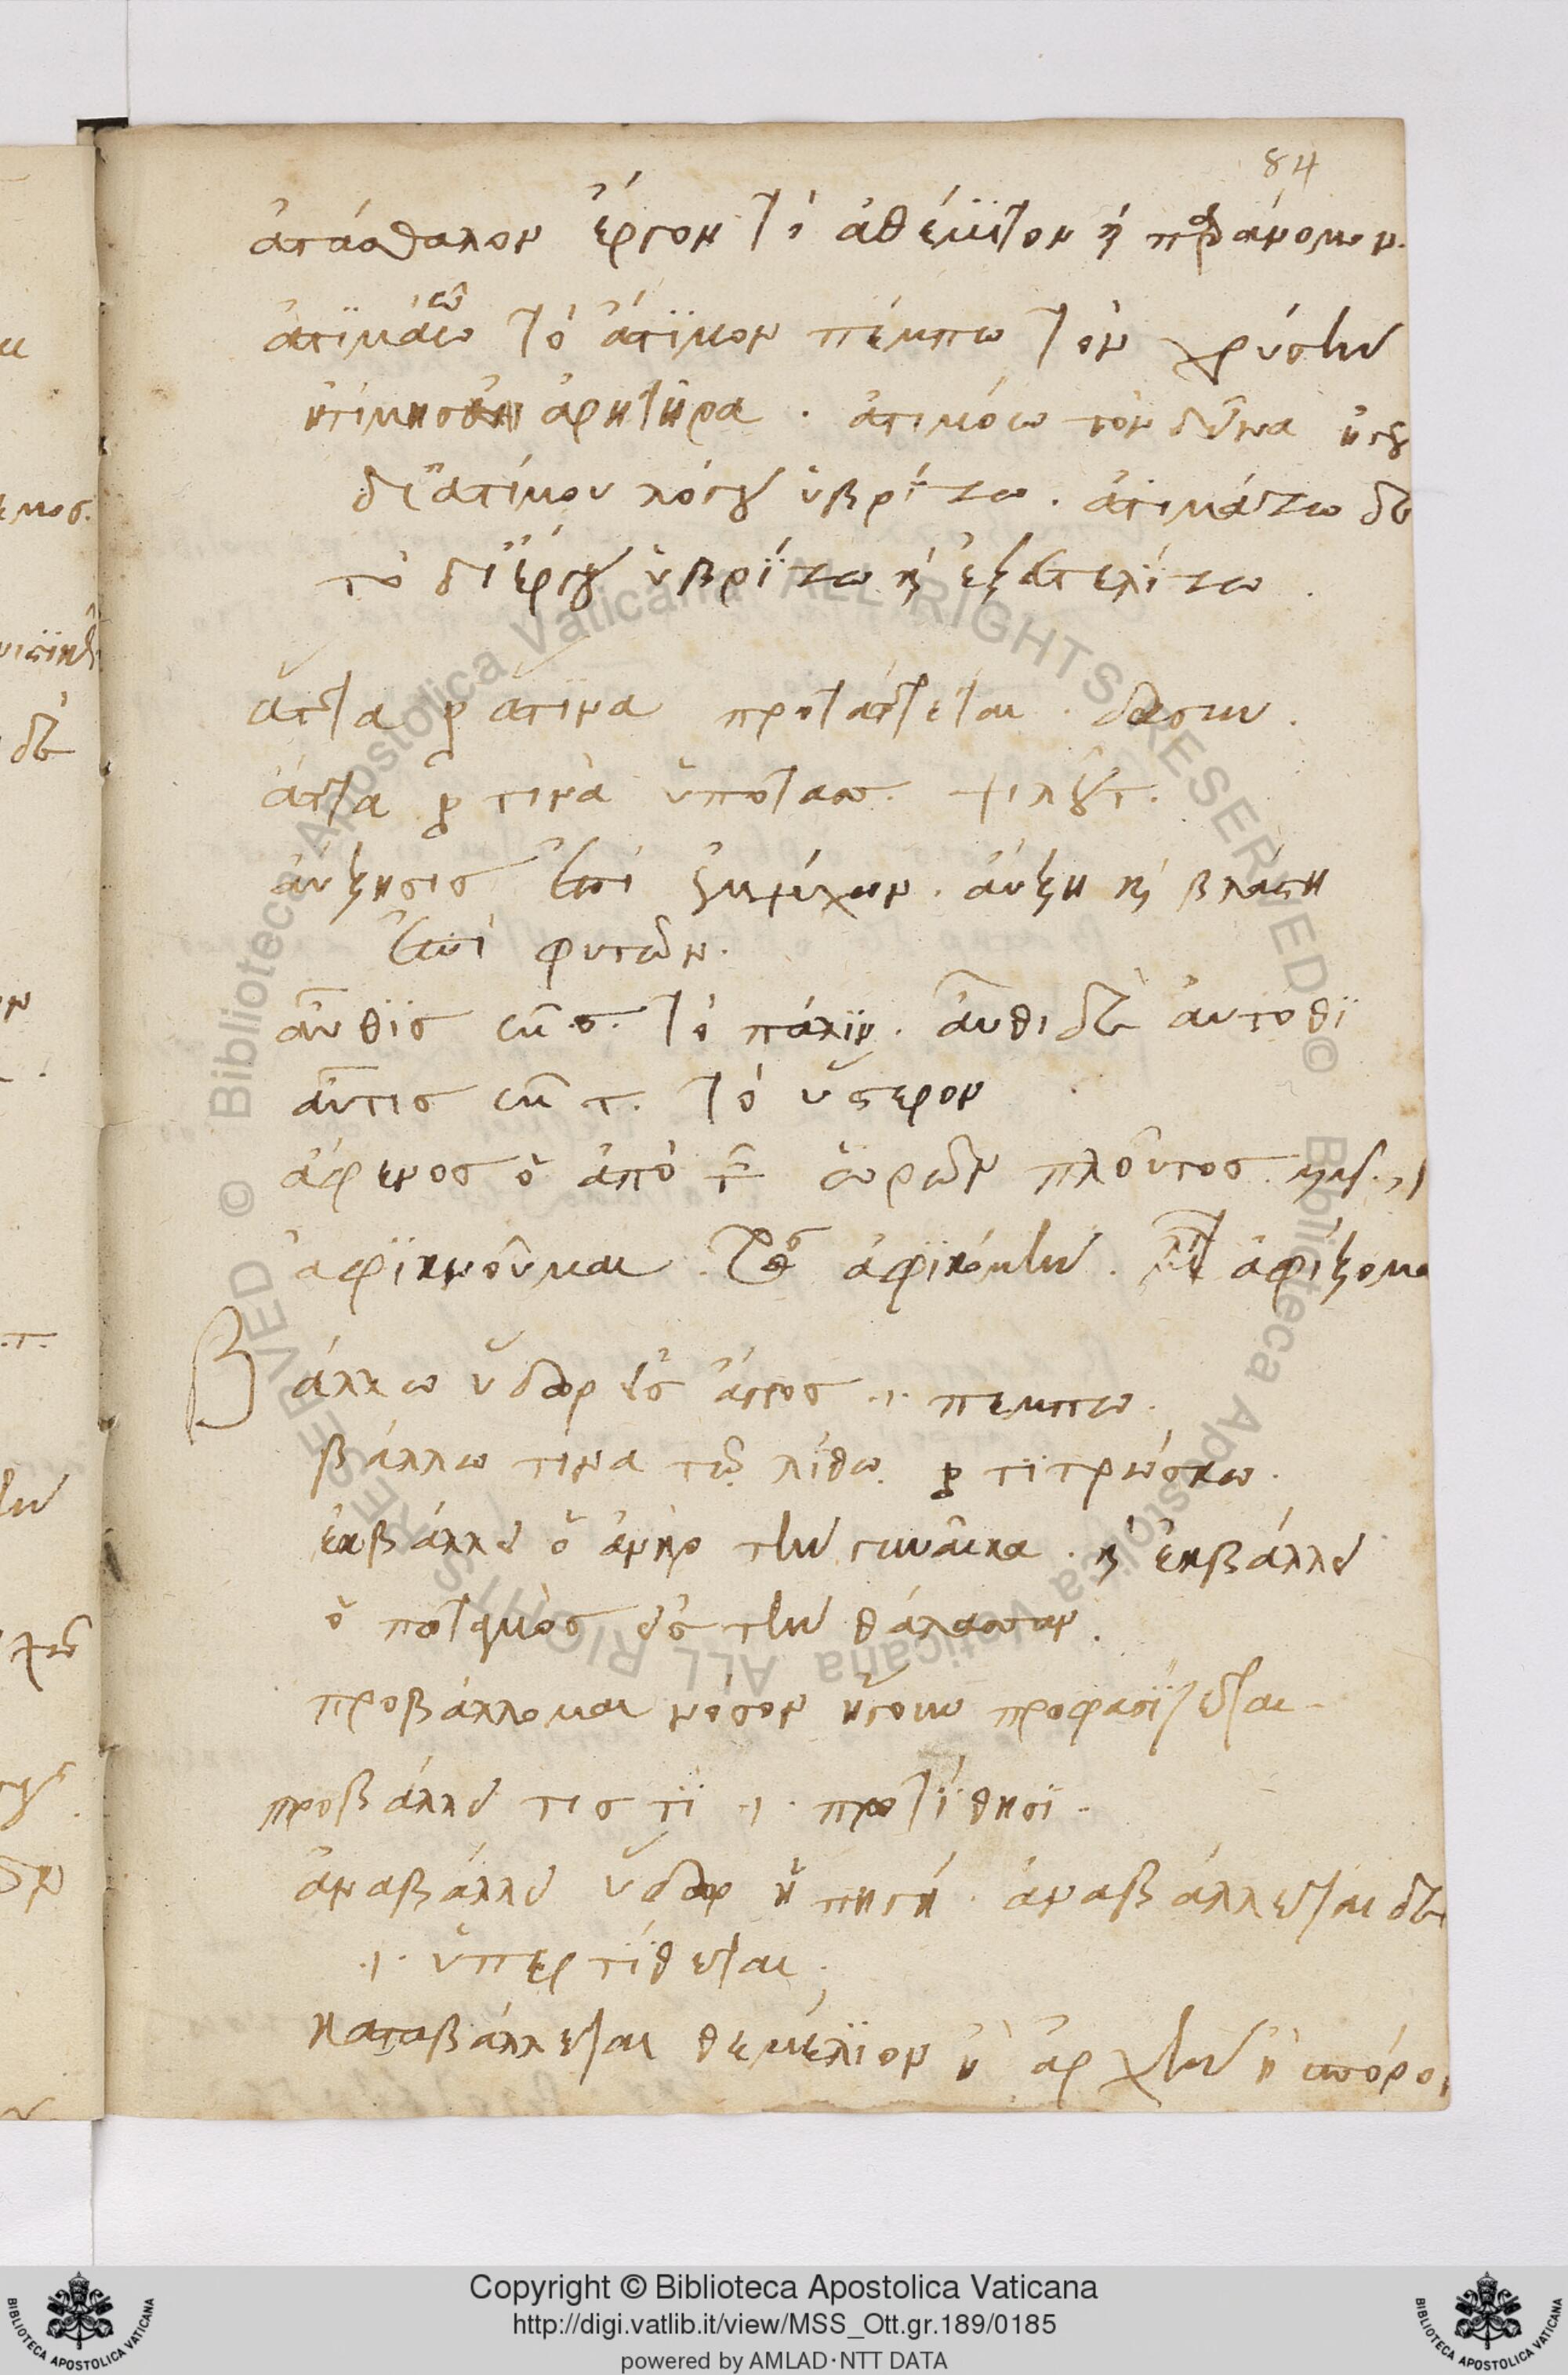 84
ἀτάσθαλον ἔργον τὸ ἀθέμιτον καὶ παράνομον.
ἀτιμάω τὸ ἄτιμον πέμπω τὸν χρύσην
ἠτίμησεν ἀρητῆρα . ἀτιμόω τὸν δεῖνα ἤγουν
δι ἀτίμου λόγου ὑβρίζω . ἀτιμάζω δὲ
τὸ δι ἔργου ὑβρίζω καὶ ἐξευτελίζω .
ἅττα ἄτινα προτάττεται δασύν .
ἄττα τινὰ ὑποτασ. ψιλοῦτ.
αὔξησις ἐπὶ ἐμψύχων . αὔξη καὶ βλάστη
ἐπὶ φυτῶν.
αὖθις σὺν θ. τὸ πάλιν . αὖθι δὲ αὐτόθι
αὖτις σὺν τ. τὸ ὕστερον
ἄφενος ὁ ἀπὸ τῶν ὡρῶν πλοῦτος
ἀφικνοῦμαι . ἀφικόμην . ἀφίξομαι
Βάλλω ὕδωρ εἰς ἄγγος .ι. πεμπω.
βάλλω τινα τῷ λίθῳ τιτρώσκω.
ἐκβάλλει ὁ ἀνὴρ τὴν γυναῖκα . καὶ ἐκβάλλει
ὁ ποταμὸς εἰς τὴν θάλασσαν .
προβάλλομαι νόσον ἤγουν προφασίζεται
προβάλλει τις τὶ .ι. προτίθησι .
ἀναβάλλει ὕδωρ ἡ πηγή . ἀναβάλλεται δὲ
.ι. ὑπερτίθεται .
καταβάλλεται θεμέλιον ἢ ἀρχὴν ἢ σπόρον
Copyright © Biblioteca Apostolica Vaticana
http://digi.vatlib.it/view/MSS_Ott.gr.189/0185
powered by AMLAD·NTT DATA